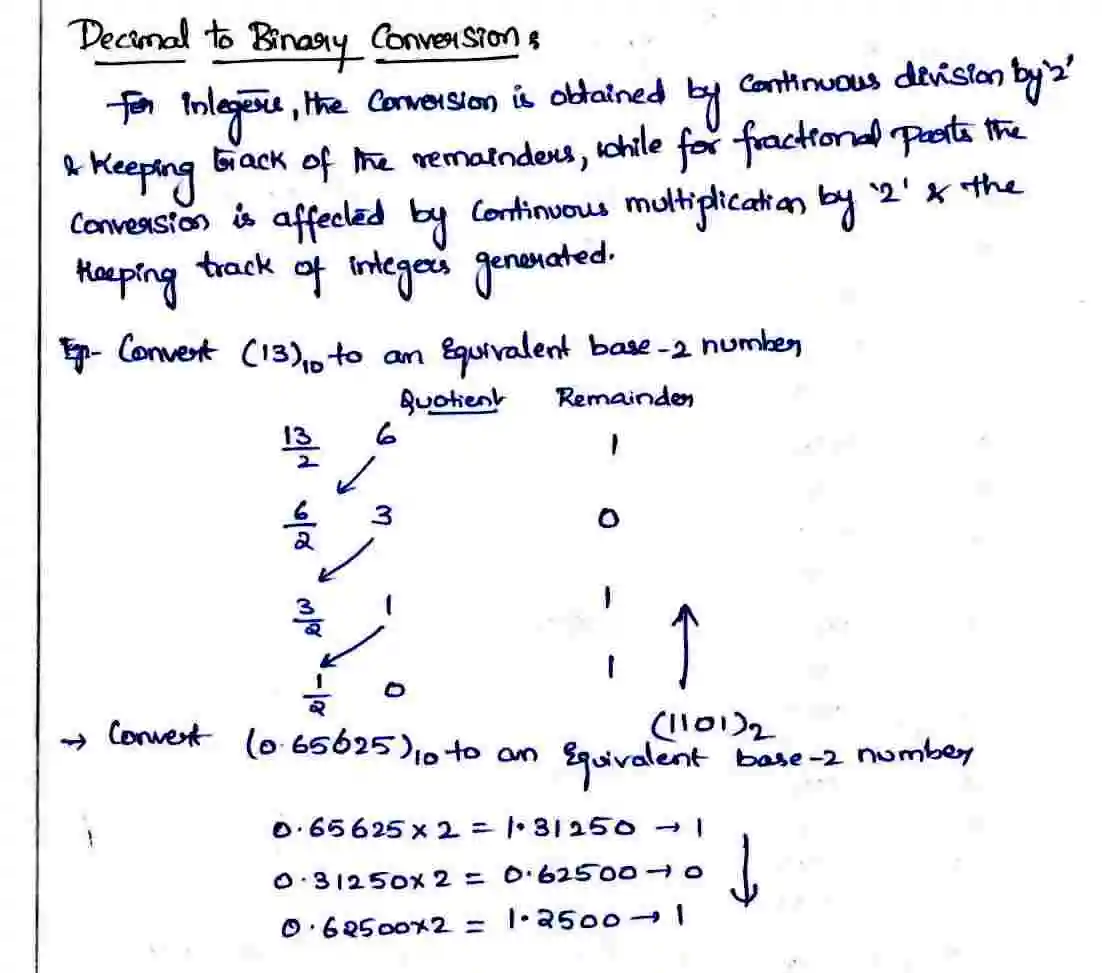 Decimal to Binary Conversion:
For integers, the conversion is obtained by continuous division by '2'
& keeping track of the remainders, while for fractional parts the
conversion is affected by continuous multiplication by '2' & the
keeping track of integers generated.
Eg- Convert (13)₁₀ to an equivalent base-2 number
Quotient Remainder
13/2 6 1
6/2 3 0
3/2 1 1
1/2 0 1
(1101)₂
→ Convert (0.65625)₁₀ to an equivalent base-2 number
0.65625 x 2 = 1.31250 → 1
0.31250x2 = 0.62500 → 0
0.62500x2 = 1.2500 → 1